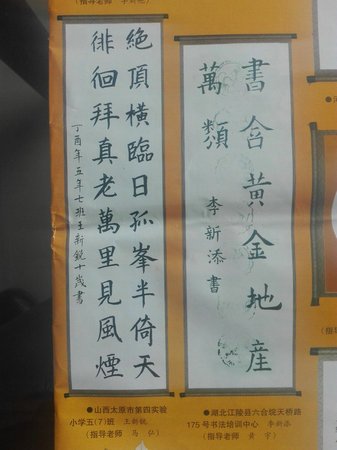 (指导老师
絕頂橫臨日孤峯半倚天
徘徊拜真老萬里見風煙
丁酉年五年七班王新銳十歲書
●山西太原市第四实验
小学五(7)班 王新锐
(指导老师 马 仁)
書含黃金地產
萬類
李新添書
●湖北江陵县六合垸天桥路
175号书法培训中心 李新添
(指导老师 黄 宇)
(指导